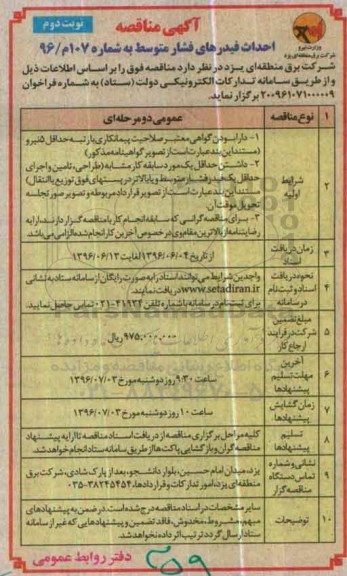 نوبت دوم
آگهی مناقصه
احداث فیدرهای فشار متوسط به شماره ۱۰۷م/۹۶
وزارت نیرو
شرکت برق منطقه‌ای یزد در نظر دارد مناقصه فوق را بر اساس اطلاعات ذیل
و از طریق سامانه تدارکات الکترونیکی دولت (ستاد) به شماره فراخوان
۲۰۰۹۶۱۰۷۱۰۰۰۰۰۹ برگزار نماید.
۱ نوع مناقصه عمومی دو مرحله‌ای
۲ شرایط اولیه
۱- دارا بودن گواهی معتبر صلاحیت پیمانکاری با رتبه حداقل ۵ نیرو
(مستند این بند عبارت است از تصویر گواهینامه مذکور)
۲- داشتن حداقل یک مورد سابقه کار مشابه (طراحی، تامین و اجرای
حداقل یک فیدر فشار متوسط و یا بالاتر در پستهای فوق توزیع یا انتقال)
مستند این بند عبارت است از تصویر قرارداد مربوطه و تصویر صورتجلسه
تحویل موقت آن.
۳- برای مناقصه گرانی که سابقه انجام کار با مناقصه گزار دارند ارایه
رضایتنامه از بالاترین مقام وی در خصوص آخرین کار انجام شده الزامی می‌باشد
۳ زمان دریافت اسناد از تاریخ ۱۳۹۶/۰۶/۰۴ لغایت ۱۳۹۶/۰۶/۱۳
۴ نحوه دریافت اسناد و ثبت نام در سامانه
واجدین شرایط می‌توانند اسناد را به صورت رایگان از سامانه ستاد به نشانی
www.setadiran.ir دریافت نمایند.
برای ثبت نام در سامانه با شماره تلفن ۴۱۹۳۴-۰۲۱ تماس حاصل نمایید.
۵ مبلغ تضمین شرکت در فرایند ارجاع کار ۹۷۵,۰۰۰,۰۰۰ ریال
۶ آخرین مهلت تسلیم پیشنهادها ساعت ۹:۳۰ روز دوشنبه مورخ ۱۳۹۶/۰۷/۰۳
۷ زمان گشایش پیشنهادها ساعت ۱۰ روز دوشنبه مورخ ۱۳۹۶/۰۷/۰۳
۸ تسلیم پیشنهادها
کلیه مراحل برگزاری مناقصه از دریافت اسناد مناقصه تا ارایه پیشنهاد
مناقصه گران و بازگشایی پاکت‌ها از طریق سامانه ستاد انجام خواهد شد.
۹ نشانی و شماره تماس دستگاه مناقصه گزار
یزد، میدان امام حسین، بلوار دانشجو، بعد از پارک شادی، شرکت برق
منطقه‌ای یزد، امور تدارکات و قراردادها، ۳۸۲۴۵۴۵۴-۰۳۵
۱۰ توضیحات
سایر مشخصات در اسناد مناقصه درج شده است. در ضمن به پیشنهادهای
مبهم، مشروط، مخدوش، فاقد تضمین و پیشنهادهایی که غیر از سامانه
ستاد ارسال گردد ترتیب اثر داده نخواهد شد.
دفتر روابط عمومی